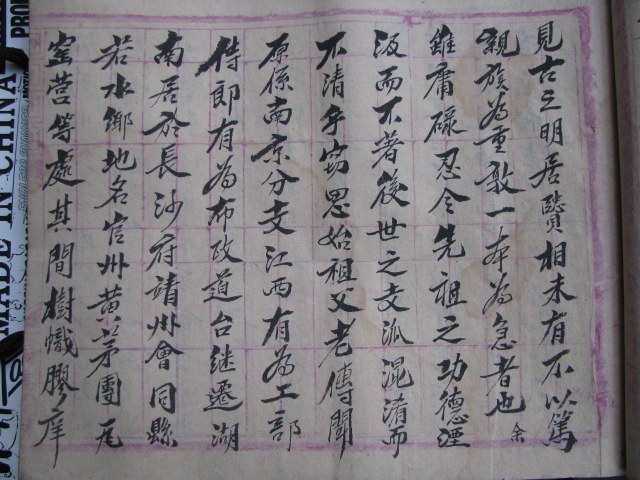 見古之明居賢相未有不以篤
親族為重敦一本為急者也余
雖庸碌忍令先祖之功德湮
汲而不著後世之支派混淆而
不清乎窃思始祖父老傳聞
原係南京分支江西有為工部
侍郎有為布政道台継遷湖
南居於長沙府靖州會同縣
若水鄉地名官州黃茅團尾
窑营等處其間樹幟膠庠
MADE IN CHINA